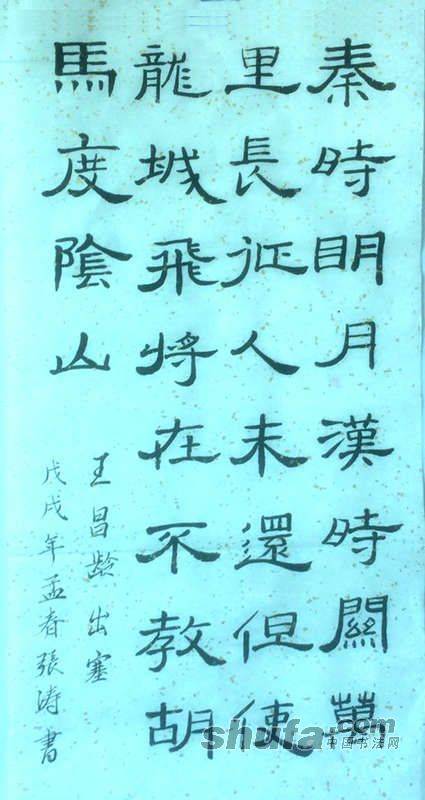 秦時明月漢時關萬
里長征人未還但使
龍城飛將在不教胡
馬度陰山
王昌龄出塞
戊戌年孟春張涛書
shufa.com
中国书法网